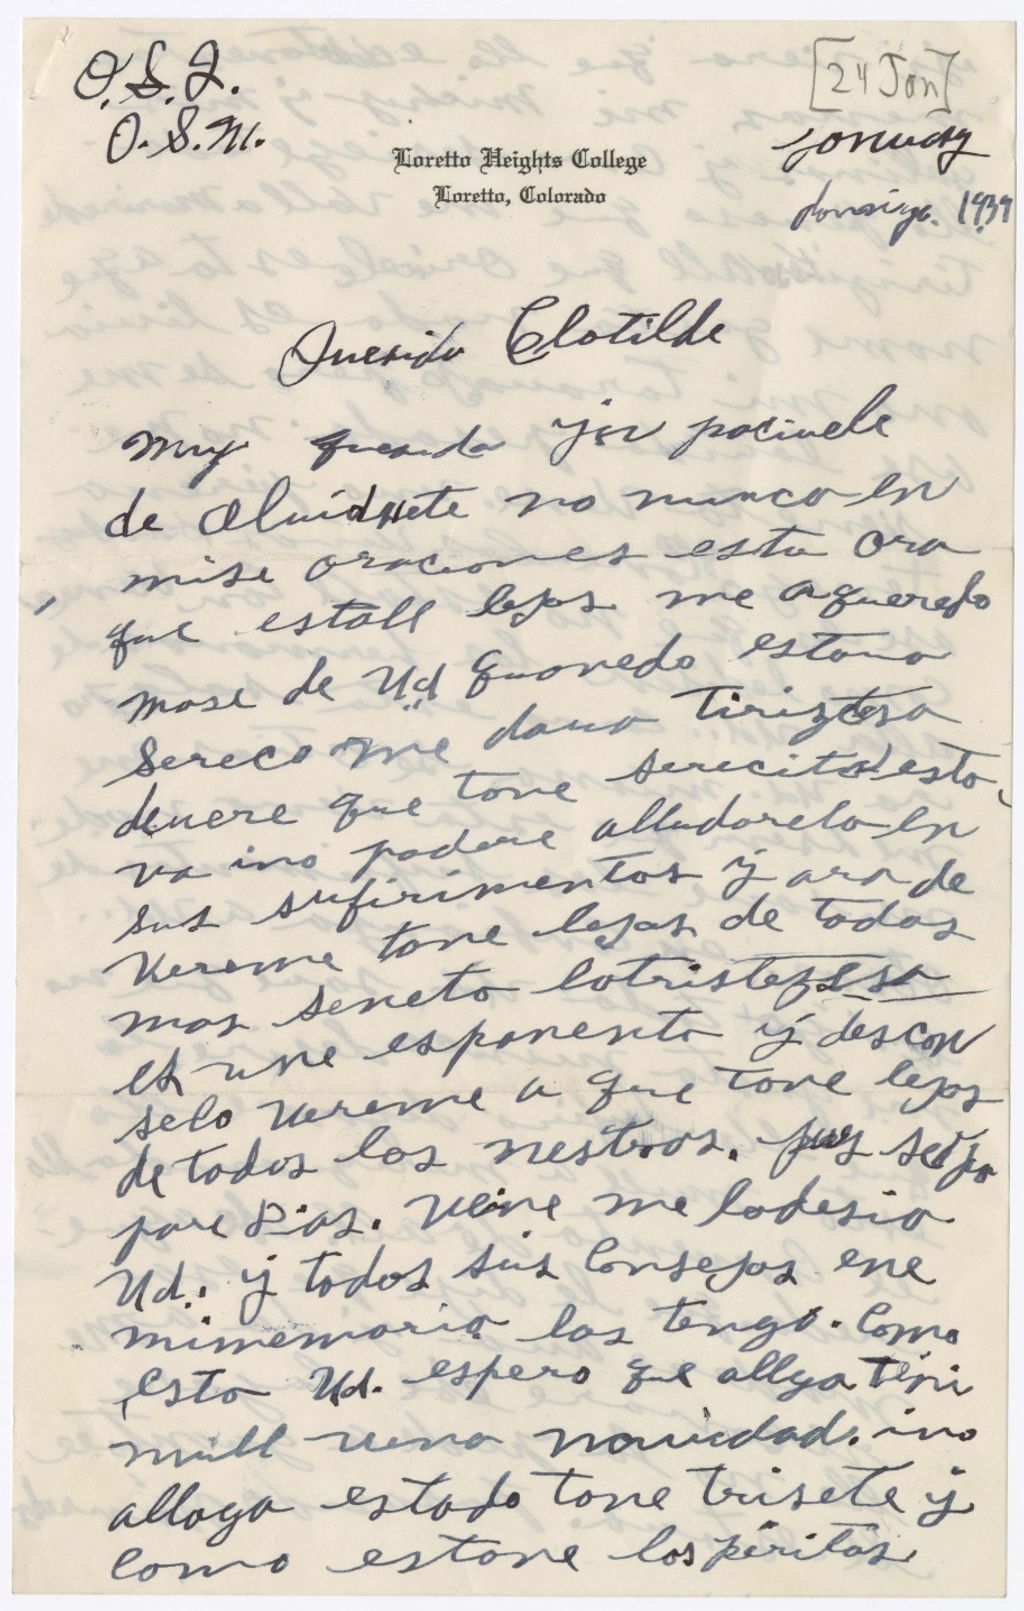 O.S.J.
O.S.M.
[24 Jan]
Loretto Heights College
Loretto, Colorado
1939
Querida Clotilde
Muy querida yjer pocivele
de oluidarte no nunca en
mise oraciones esta ora
que estall lejos me aqueredo
mase de Ud quonedo estava
sereco me dava tirizteza
devere que tone serecita esto
va ino podere alludorela en
sus sufirimentos y ara de
vereme tone lejos de todos
mas seneto lotristezesa
es une esponento y descon
selo vereme a que tone lejos
de todos los nestros. pues sedjo
pore Dios. Veine me lodesia
Ud. y todos sus Consejos ene
mimemoria los tengo. Como
esto Ud. espero que allga teni
mull vena navidad. ino
allaga estado tone trisete y
como estone los peritos